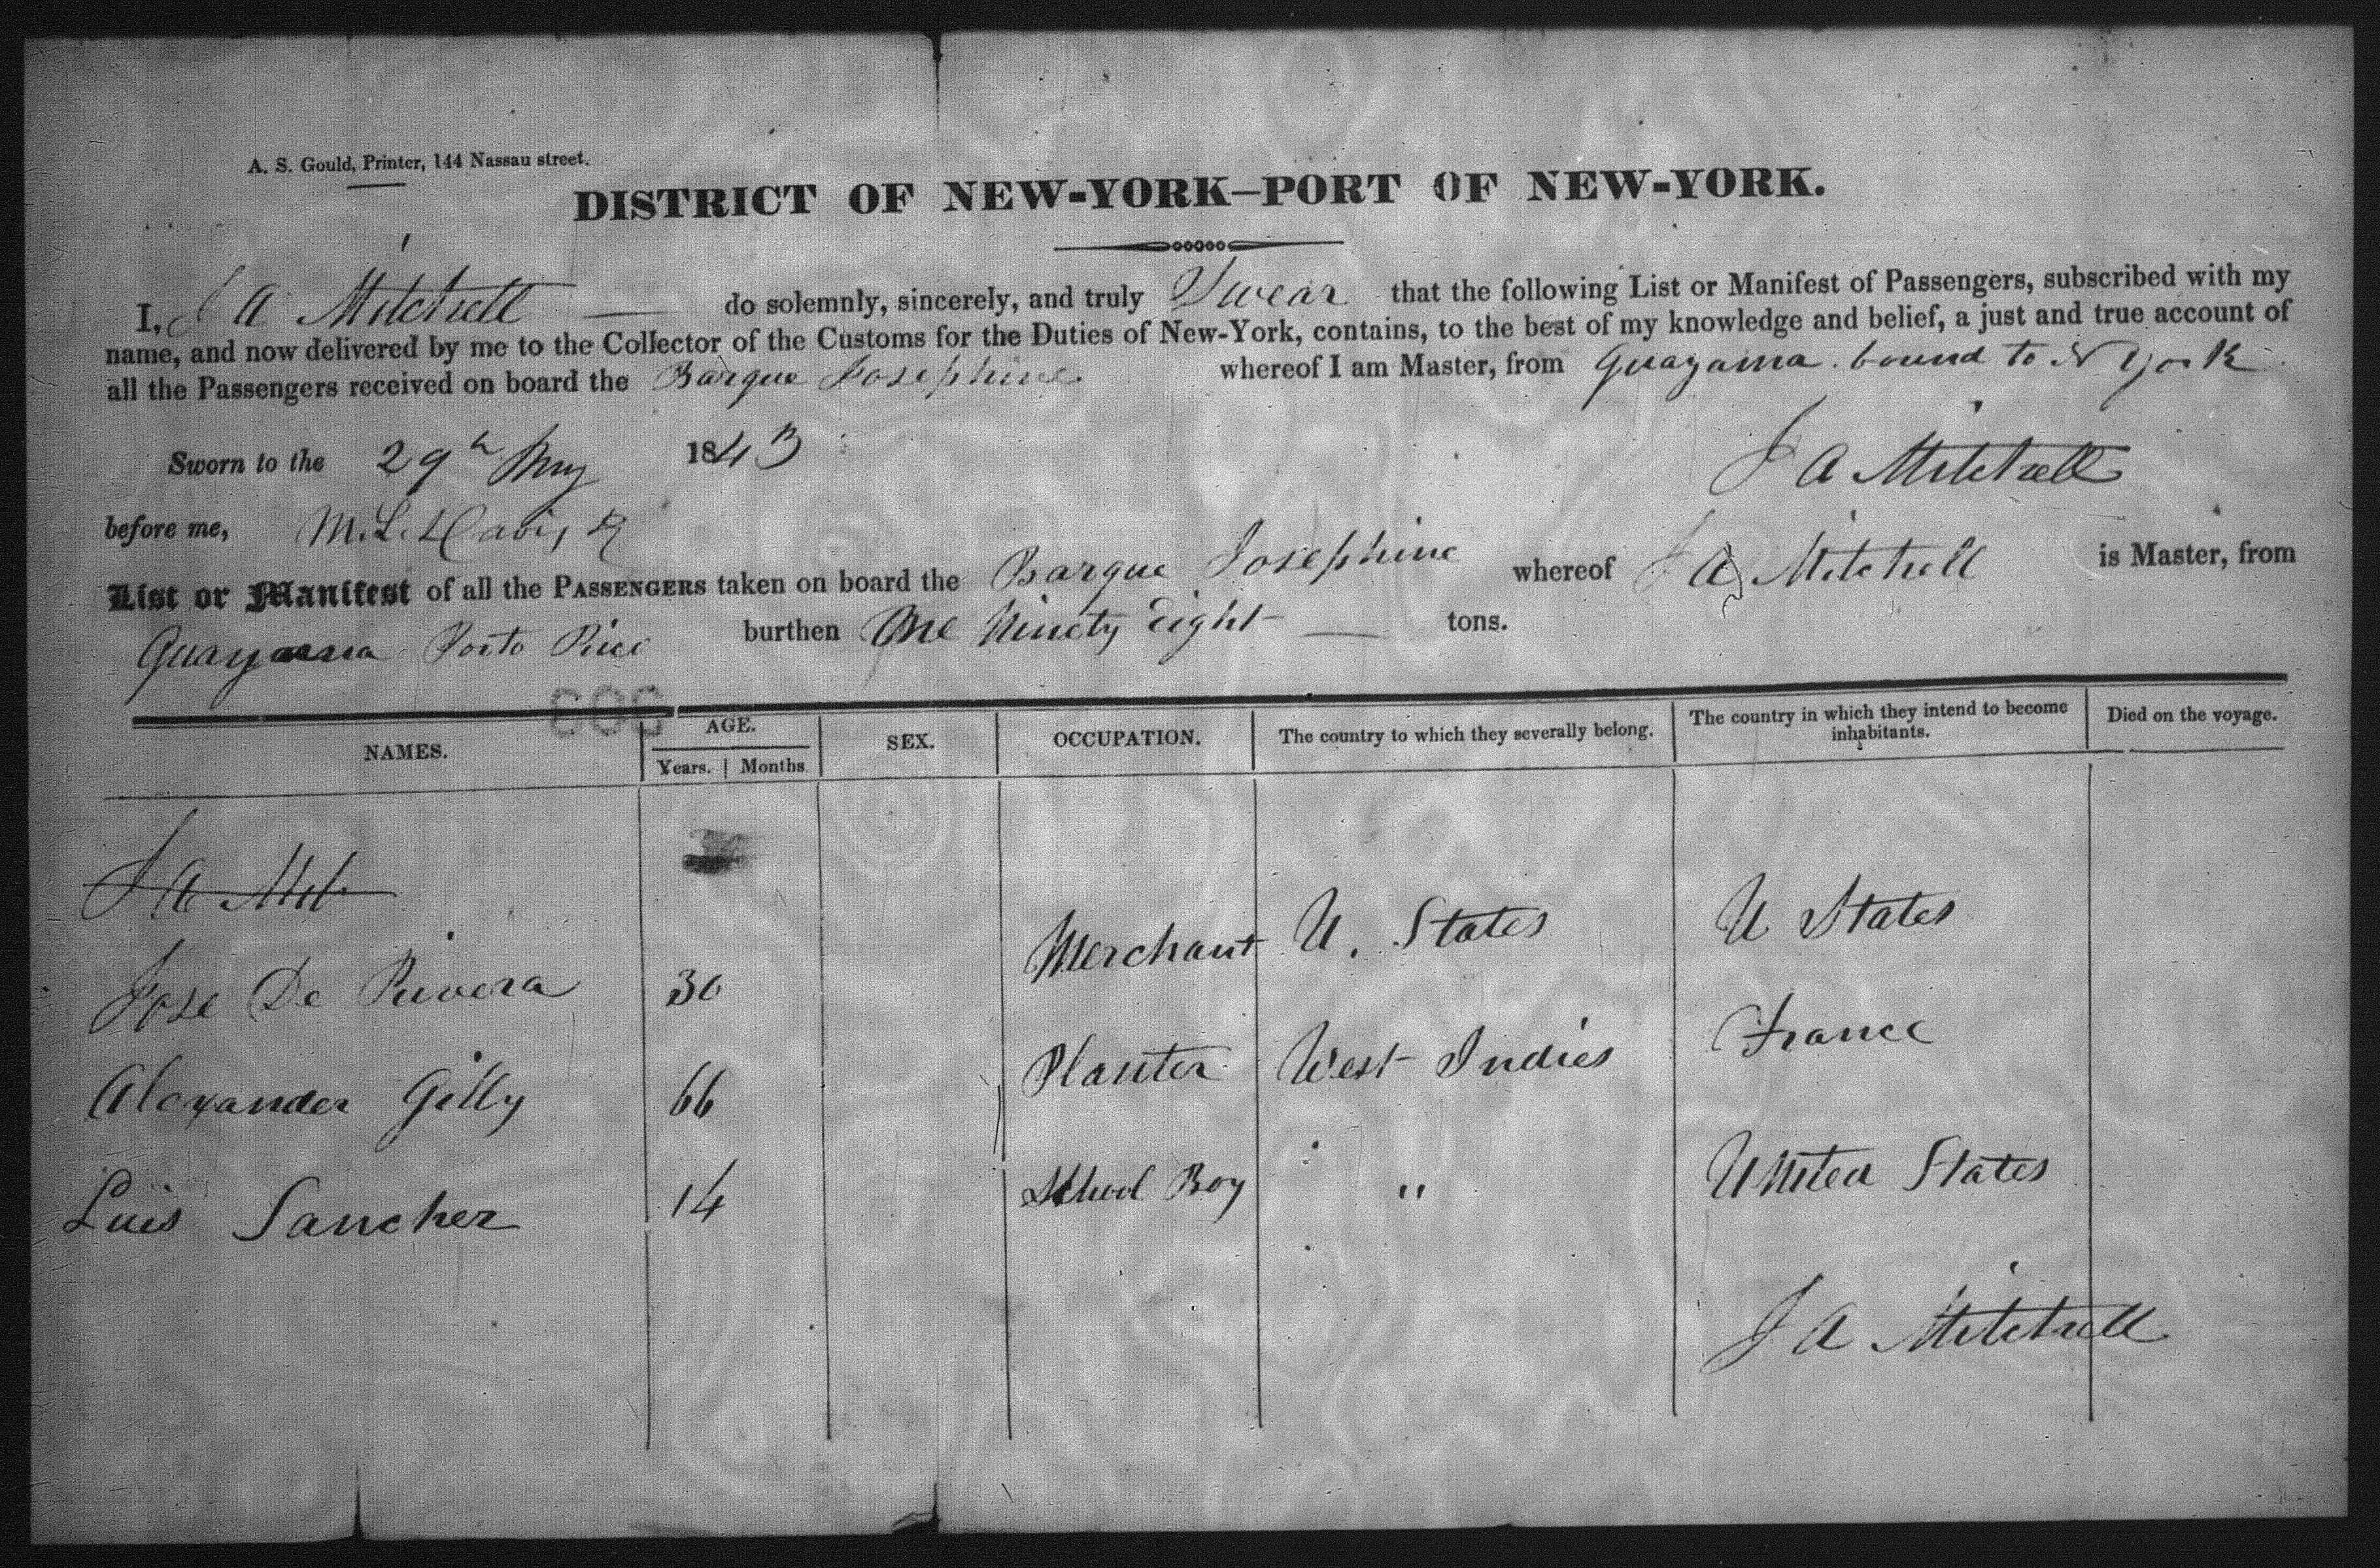 A. S. Gould, Printer, 144 Nassau street.
DISTRICT OF NEW-YORK—PORT OF NEW-YORK.
I, J A Mitchell do solemnly, sincerely, and truly Swear that the following List or Manifest of Passengers, subscribed with my
name, and now delivered by me to the Collector of the Customs for the Duties of New-York, contains, to the best of my knowledge and belief, a just and true account of
all the Passengers received on board the Barque Josephine whereof I am Master, from Guayama bound to N York
Sworn to the 29th May 1843
J A Mitchell
before me, M. L. Davis
List or Manifest of all the PASSENGERS taken on board the Barque Josephine whereof J A Mitchell is Master, from
Guayama Porto Rico burthen One Ninety Eight tons.
NAMES. AGE. SEX. OCCUPATION. The country to which they severally belong. The country in which they intend to become inhabitants. Died on the voyage.
Years. Months
J A Mit
Jose De Rivera 30 Merchant U. States U States
Alexander Gilly 66 Planter West Indies France
Luis Sanchez 14 School Boy " United States
J A Mitchell